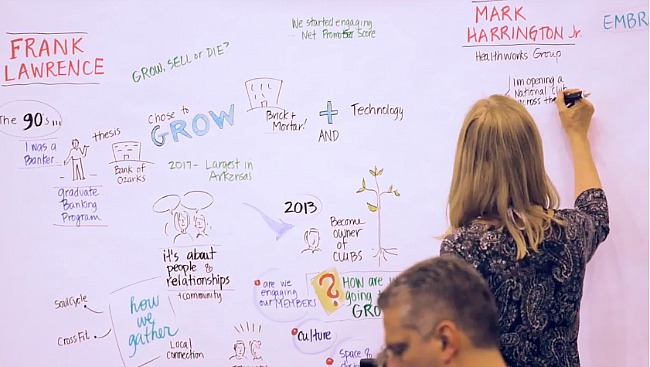 FRANK
LAWRENCE
GROW, SELL or DIE?
We started engaging
Net Promoter Score
MARK
HARRINGTON Jr.
Healthworks Group
I'm opening a
National Club
EMBR
The 90's...
I was a
Banker
thesis
graduate
Banking
Program
Bank of
Ozarks
chose to
GROW
Brick +
Mortar!
+
AND
Technology
2017 - Largest in
Arkansas
it's about
people &
relationships
+ community
2013
Become
owner
of
CLUBS
are we
engaging
our MEMBERS
?
HOW are
going
GRO
SoulCycle
CrossFit
how
we
gather
Local
connection
culture
Space